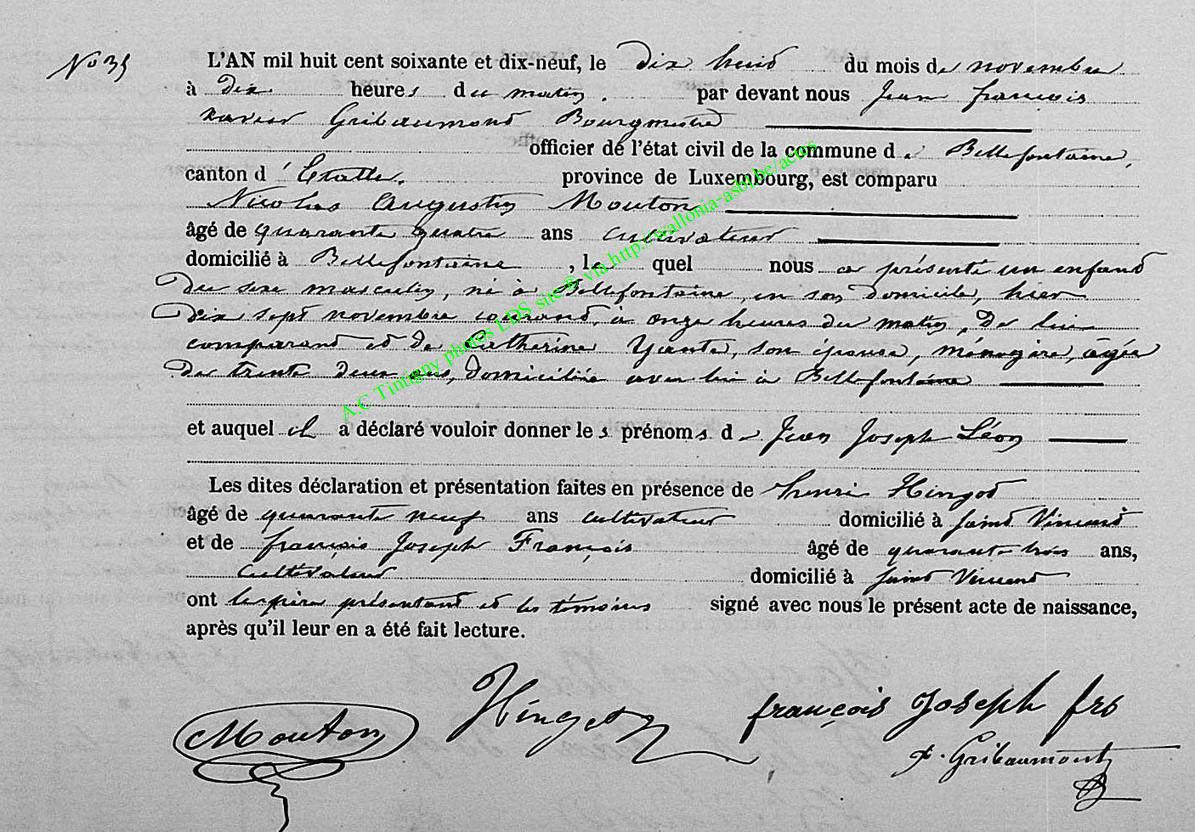 No 35
L'AN mil huit cent soixante et dix-neuf, le dix huit du mois de novembre
à dix heures du matin. par devant nous Jean françois
xavier Gribaumont Bourgmestre
officier de l'état civil de la commune de Bellefontaine,
canton d'Etalle. province de Luxembourg, est comparu
Nicolas Augustin Mouton
âgé de quarante quatre ans cultivateur
domicilié à Bellefontaine, le quel nous a présenté un enfant
du sexe masculin, né à Bellefontaine, en son domicile, hier
dix sept novembre courant, à onze heures du matin, de lui
comparant et de Catherine Yante, son épouse, ménagère, âgée
de trente deux ans, domiciliée avec lui à Bellefontaine
et auquel il a déclaré vouloir donner les prénoms de Jean Joseph Léon
Les dites déclaration et présentation faites en présence de henri Hingot
âgé de quarante neuf ans cultivateur domicilié à Saint Vincent
et de françois Joseph François âgé de quarante trois ans,
cultivateur domicilié à Saint Vincent
ont le père présentant et les témoins signé avec nous le présent acte de naissance,
après qu'il leur en a été fait lecture.
Mouton Hinget françois Joseph frs
x. Gribaumont
A.C Tintigny photos LDS site © via http://wallonia-asbl.be/actes